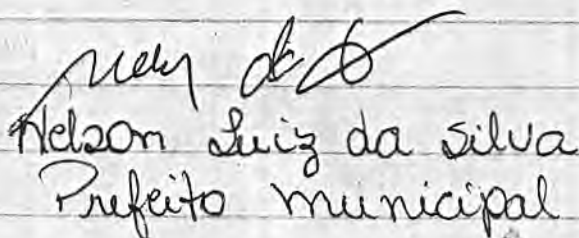 Nelson Luiz da Silva
Prefeito municipal